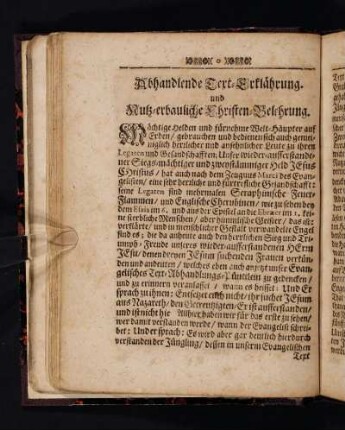 Abhandlende Text-Erklährung.
und
Nutz-erbauliche Christen-Belehrung.
Mächtige Helden und fürnehme Welt-Häupter auf
Erden, gebrauchen und bedienen sich auch gemei-
niglich herrlicher und ansehnlicher Leute zu ihren
Legaten und Gesandschafften, Unser wieder aufferstande-
ner Siegs-mächtiger und zweystämmiger Held JEsus
CHristus / hat auch nach dem Zeugnus Marci des Evan-
gelisten / eine sehr herrliche und fürtreffliche Gesandschafft:
seine Legaten sind mehrmalen Seraphinische Feuer-
Flammen / und Englische Cherubinen / wie zu sehen bey
dem Esaia im 6. und aus der Epistel an die Ebræer im 1. keine
seerbliche Menschen / aber himmlische Geister / das ist:
verklärte / und in menschlicher Gestalt verwandelte Engel
sind es: die da anheute auch den herrlichen Sieg und Tri-
umph-Freude unseres wieder-aufferstandenen HErrn
JEsu / denen dreyen JEsum suchenden Frauen verkün-
den und andeuten / welches eben auch anjetzt unser Evan-
gelisches Text-Abhandlungs-Püncktlein zu gedencken /
und zu erinnern veranlasset / wann es heisset: Und Er
sprach zu ihnen: Entsetzet euch nicht: ihr suchet JEsum
von Nazareth / den Gecreutzigten: Er ist aufferstanden /
und ist nicht hie
Allhier haben wir für das erste zu sehen /
wer damit verstanden werde / wann der Evangelist schrei-
bet: Und er sprach: Es wird aber gar deutlich hierdurch
verstanden der Jüngling / dessen in unserm Evangelischen
Text